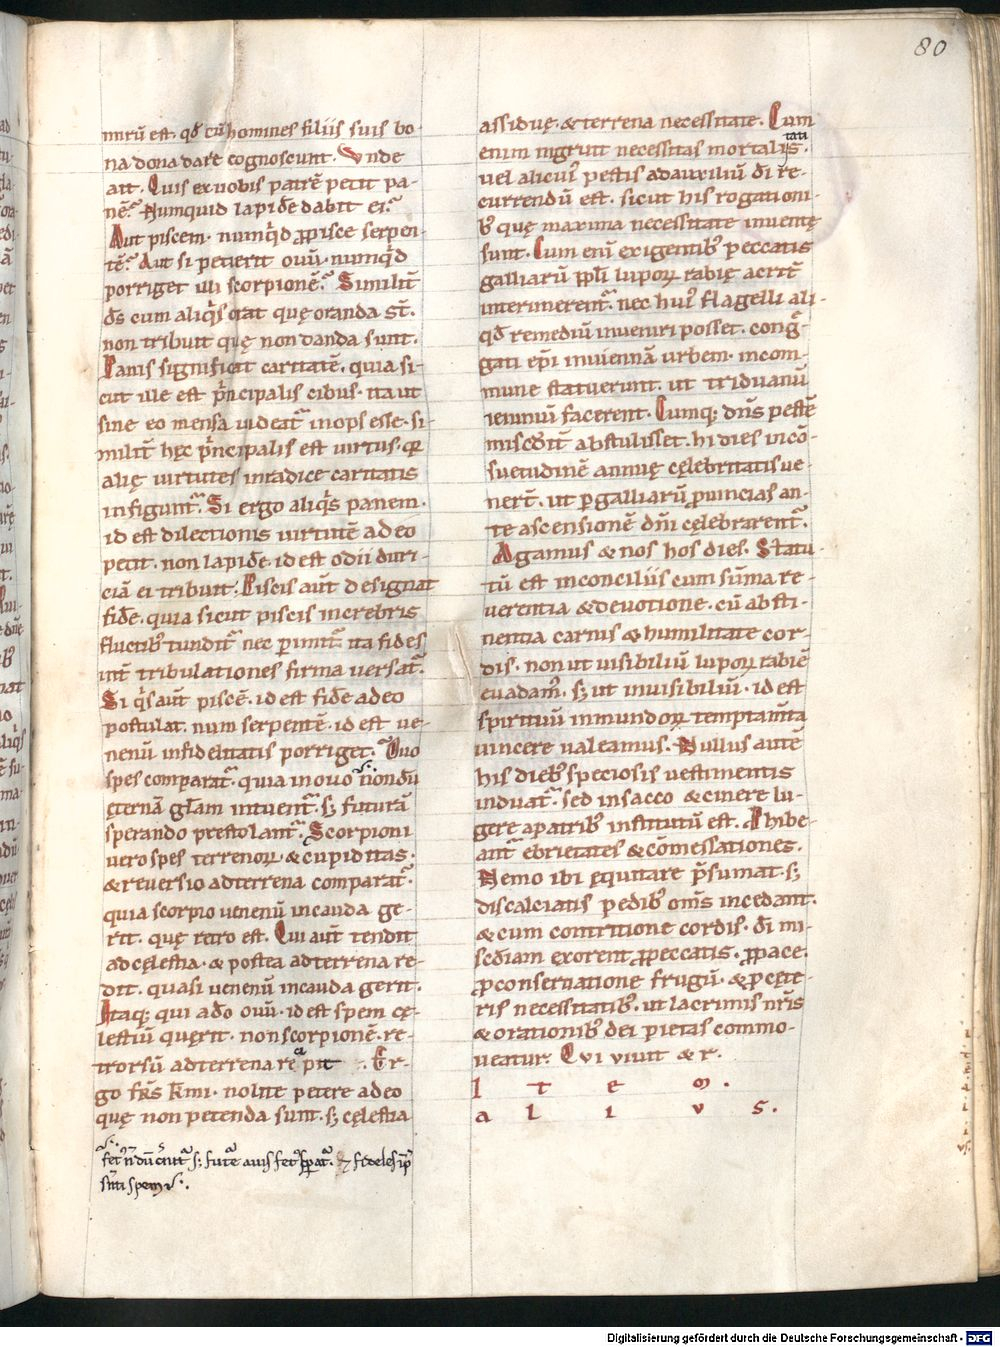 80
mirū est. qd̄ cū homines filiis suis bo-
na dona dare cognoscunt. Unde
ait. Quis ex uobis patrē petit pa-
nē? Numquid lapidē dabit ei?
Aut piscem. numqⁱd ꝓ pisce serpen-
tē? Aut si petierit ouū. numqⁱd
porriget illi scorpionē? Similit̄
ds̄ cum aliqⁱs orat quę oranda st̄.
non tribuit quę non danda sunt.
Panis significat caritatē. quia si-
cut ille est pⁱncipalis cibus. ita ut
sine eo mensa uideat᷑ inops esse. si-
milit̄ hęc pⁱncipalis est uirtus. qᷓ
alię uirtutes in radice caritatis
infigunt᷑. Si ergo aliqⁱs panem.
id est dilectionis uirtutē a deo
petit. non lapidē. id est odii duri-
ciā ei tribuit. Piscis aut̄ designat
fidē. quia sicut piscis in crebris
fluctibꝰ tundit᷑ nec perimit᷑. ita fides
int̄ tribulationes firma uersat᷑.
Si qⁱs aut̄ piscē. id est fidē a deo
postulat. num serpentē. id est ue-
nenū infidelitatis porriget. Ouo
spes comparat᷑. quia in ouo nondū
ęternā gl̄am intuent᷑. sꝫ futurā
sperando prestolant᷑. Scorpioni
uero spes terrenoꝝ. & cupiditas.
& reuersio ad terrena comparat᷑.
quia scorpio uenenū in cauda ge-
rit. quę retro est. Qui aut̄ tendit
ad cęlestia. & postea ad terrena re-
dit. quasi uenenū in cauda gerit.
Itaqꝫ qui a dō ouū. id est spem cę-
lestiū quęrit. non scorpionē. re-
trorsū ad terrena recipit. Er-
go frs̄ km̄i. nolite petere a deo
quę non petenda sunt. sꝫ cęlestia
assiduę. & terrena necessitate. Cum
enim ingruit necessitas mortalitatis.
uel alicuiꝰ pestis ad auxiliū dī re-
currendū est. sicut his rogationi-
bꝰ quę maxima necessitate inuentę
sunt. Cum enī exigentibꝰ peccatis
galliarū ppl̄i lupoꝝ rabię acrit̄
interimerent᷑. nec huiꝰ flagelli ali-
qd̄ remediū inueniri posset. congᷓ-
gati ep̄i in uiennā urbem. in com-
mune statuerunt. ut triduanū
ieiuniū facerent. Cumqꝫ dn̄s pestē
miscdit̄ abstulisset. hi dies in cō-
suetudinē annuę cęlebritatis ue-
nert̄. ut per galliarū ꝓuincias an-
te ascensionē dn̄i cęlebrarent᷑.
Agamus & nos hos dies. Statu-
tū est in conciliis cum sūma re-
uerentia & deuotione. cū absti-
nentia carnis & humilitate cor-
dis. non ut uisibiliū lupoꝝ rabiē
euadamꝰ. sꝫ ut inuisibiliū. id est
spirituū inmundoꝝ temptam̄ta
uincere ualeamus. Nullus autē
his diebꝰ speciosis uestimentis
induat᷑. sed in sacco & cinere lu-
gere a patribꝰ institutū est. Phibe-
ant᷑ ebrietates & cōmessationes.
Nemo ibi equitare pͣsumat. sꝫ
discalciatis pedibꝰ om̄s incedant.
& cum contritione cordis. dī mi-
scd̄iam exorent ꝓ peccatis. ꝓ pace.
ꝓ conseruatione frugū. & ꝓ cęte-
ris necessitatibꝰ. ut lacrimis nr̄is
& orationibꝰ dei pietas commo-
ueatur. Qui uiuit & r.
I T E M.
A L I V S.